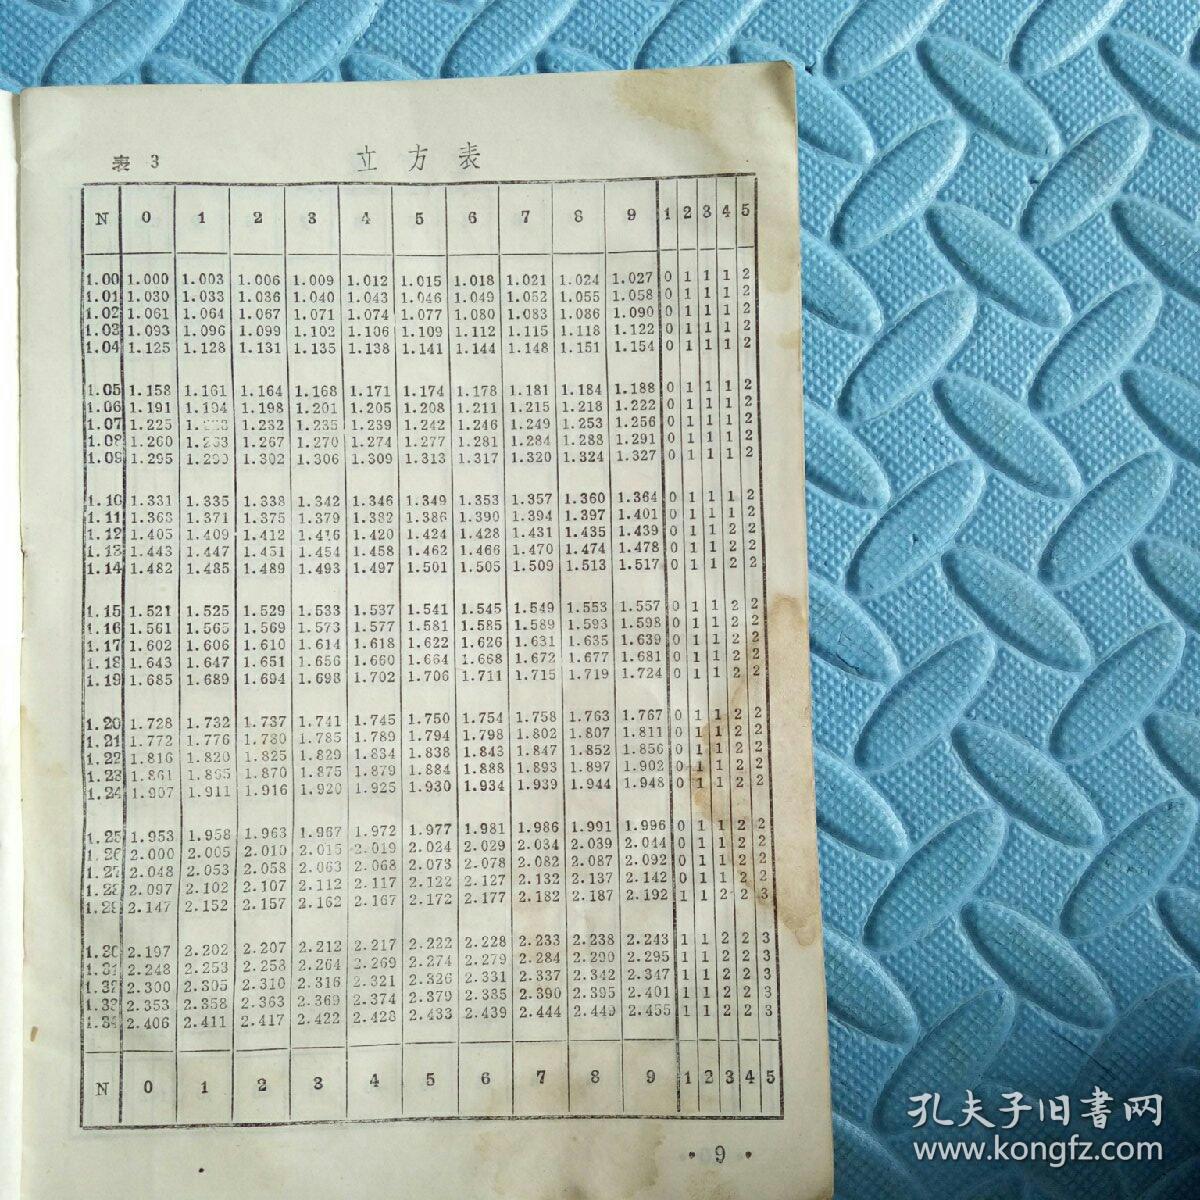 表 3 立方表
N 0 1 2 3 4 5 6 7 8 9 1 2 3 4 5
1.00 1.000 1.003 1.006 1.009 1.012 1.015 1.018 1.021 1.024 1.027 0 1 1 1 2
1.01 1.030 1.033 1.036 1.040 1.043 1.046 1.049 1.052 1.055 1.058 0 1 1 1 2
1.02 1.061 1.064 1.067 1.071 1.074 1.077 1.080 1.083 1.086 1.090 0 1 1 1 2
1.03 1.093 1.096 1.099 1.102 1.106 1.109 1.112 1.115 1.118 1.122 0 1 1 1 2
1.04 1.125 1.128 1.131 1.135 1.138 1.141 1.144 1.148 1.151 1.154 0 1 1 1 2
1.05 1.158 1.161 1.164 1.168 1.171 1.174 1.178 1.181 1.184 1.188 0 1 1 1 2
1.06 1.191 1.194 1.198 1.201 1.205 1.208 1.211 1.215 1.218 1.222 0 1 1 1 2
1.07 1.225 1.232 1.235 1.239 1.242 1.246 1.249 1.253 1.256 0 1 1 1 2
1.08 1.260 1.263 1.267 1.270 1.274 1.277 1.281 1.284 1.288 1.291 0 1 1 1 2
1.09 1.295 1.302 1.306 1.309 1.313 1.317 1.320 1.324 1.327 0 1 1 1 2
1.10 1.331 1.335 1.338 1.342 1.346 1.349 1.353 1.357 1.360 1.364 0 1 1 1 2
1.11 1.368 1.371 1.375 1.379 1.382 1.386 1.390 1.394 1.397 1.401 0 1 1 1 2
1.12 1.405 1.409 1.412 1.416 1.420 1.424 1.428 1.431 1.435 1.439 0 1 1 2 2
1.13 1.443 1.447 1.451 1.454 1.458 1.462 1.466 1.470 1.474 1.478 0 1 1 2 2
1.14 1.482 1.485 1.489 1.493 1.497 1.501 1.505 1.509 1.513 1.517 0 1 1 2 2
1.15 1.521 1.525 1.529 1.533 1.537 1.541 1.545 1.549 1.553 1.557 0 1 1 2 2
1.16 1.561 1.565 1.569 1.573 1.577 1.581 1.585 1.589 1.593 1.598 0 1 1 2 2
1.17 1.602 1.606 1.610 1.614 1.618 1.622 1.626 1.631 1.635 1.639 0 1 1 2 2
1.18 1.643 1.647 1.651 1.656 1.660 1.664 1.668 1.672 1.677 1.681 0 1 1 2 2
1.19 1.685 1.689 1.694 1.698 1.702 1.706 1.711 1.715 1.719 1.724 0 1 1 2 2
1.20 1.728 1.732 1.737 1.741 1.745 1.750 1.754 1.758 1.763 1.767 0 1 1 2 2
1.21 1.772 1.776 1.780 1.785 1.789 1.794 1.798 1.802 1.807 1.811 0 1 1 2 2
1.22 1.816 1.820 1.825 1.829 1.834 1.838 1.843 1.847 1.852 1.856 0 1 1 2 2
1.23 1.861 1.865 1.870 1.875 1.879 1.884 1.888 1.893 1.897 1.902 0 1 1 2 2
1.24 1.907 1.911 1.916 1.920 1.925 1.930 1.934 1.939 1.944 1.948 0 1 1 2 2
1.25 1.953 1.958 1.963 1.967 1.972 1.977 1.981 1.986 1.991 1.996 0 1 1 2 2
1.26 2.000 2.005 2.010 2.015 2.019 2.024 2.029 2.034 2.039 2.044 0 1 1 2 2
1.27 2.048 2.053 2.058 2.063 2.068 2.073 2.078 2.082 2.087 2.092 0 1 1 2 2
1.28 2.097 2.102 2.107 2.112 2.117 2.122 2.127 2.132 2.137 2.142 0 1 1 2 2
1.29 2.147 2.152 2.157 2.162 2.167 2.172 2.177 2.182 2.187 2.192 1 1 2 2 3
1.30 2.197 2.202 2.207 2.212 2.217 2.222 2.228 2.233 2.238 2.243 1 1 2 2 3
1.31 2.248 2.253 2.258 2.264 2.269 2.274 2.279 2.284 2.290 2.295 1 1 2 2 3
1.32 2.300 2.305 2.310 2.316 2.321 2.326 2.331 2.337 2.342 2.347 1 1 2 2 3
1.33 2.353 2.358 2.363 2.369 2.374 2.379 2.385 2.390 2.395 2.401 1 1 2 2 3
1.34 2.406 2.411 2.417 2.422 2.428 2.433 2.439 2.444 2.449 2.455 1 1 2 2 3
N 0 1 2 3 4 5 6 7 8 9 1 2 3 4 5
• 9 •
孔夫子旧书网
www.kongfz.com